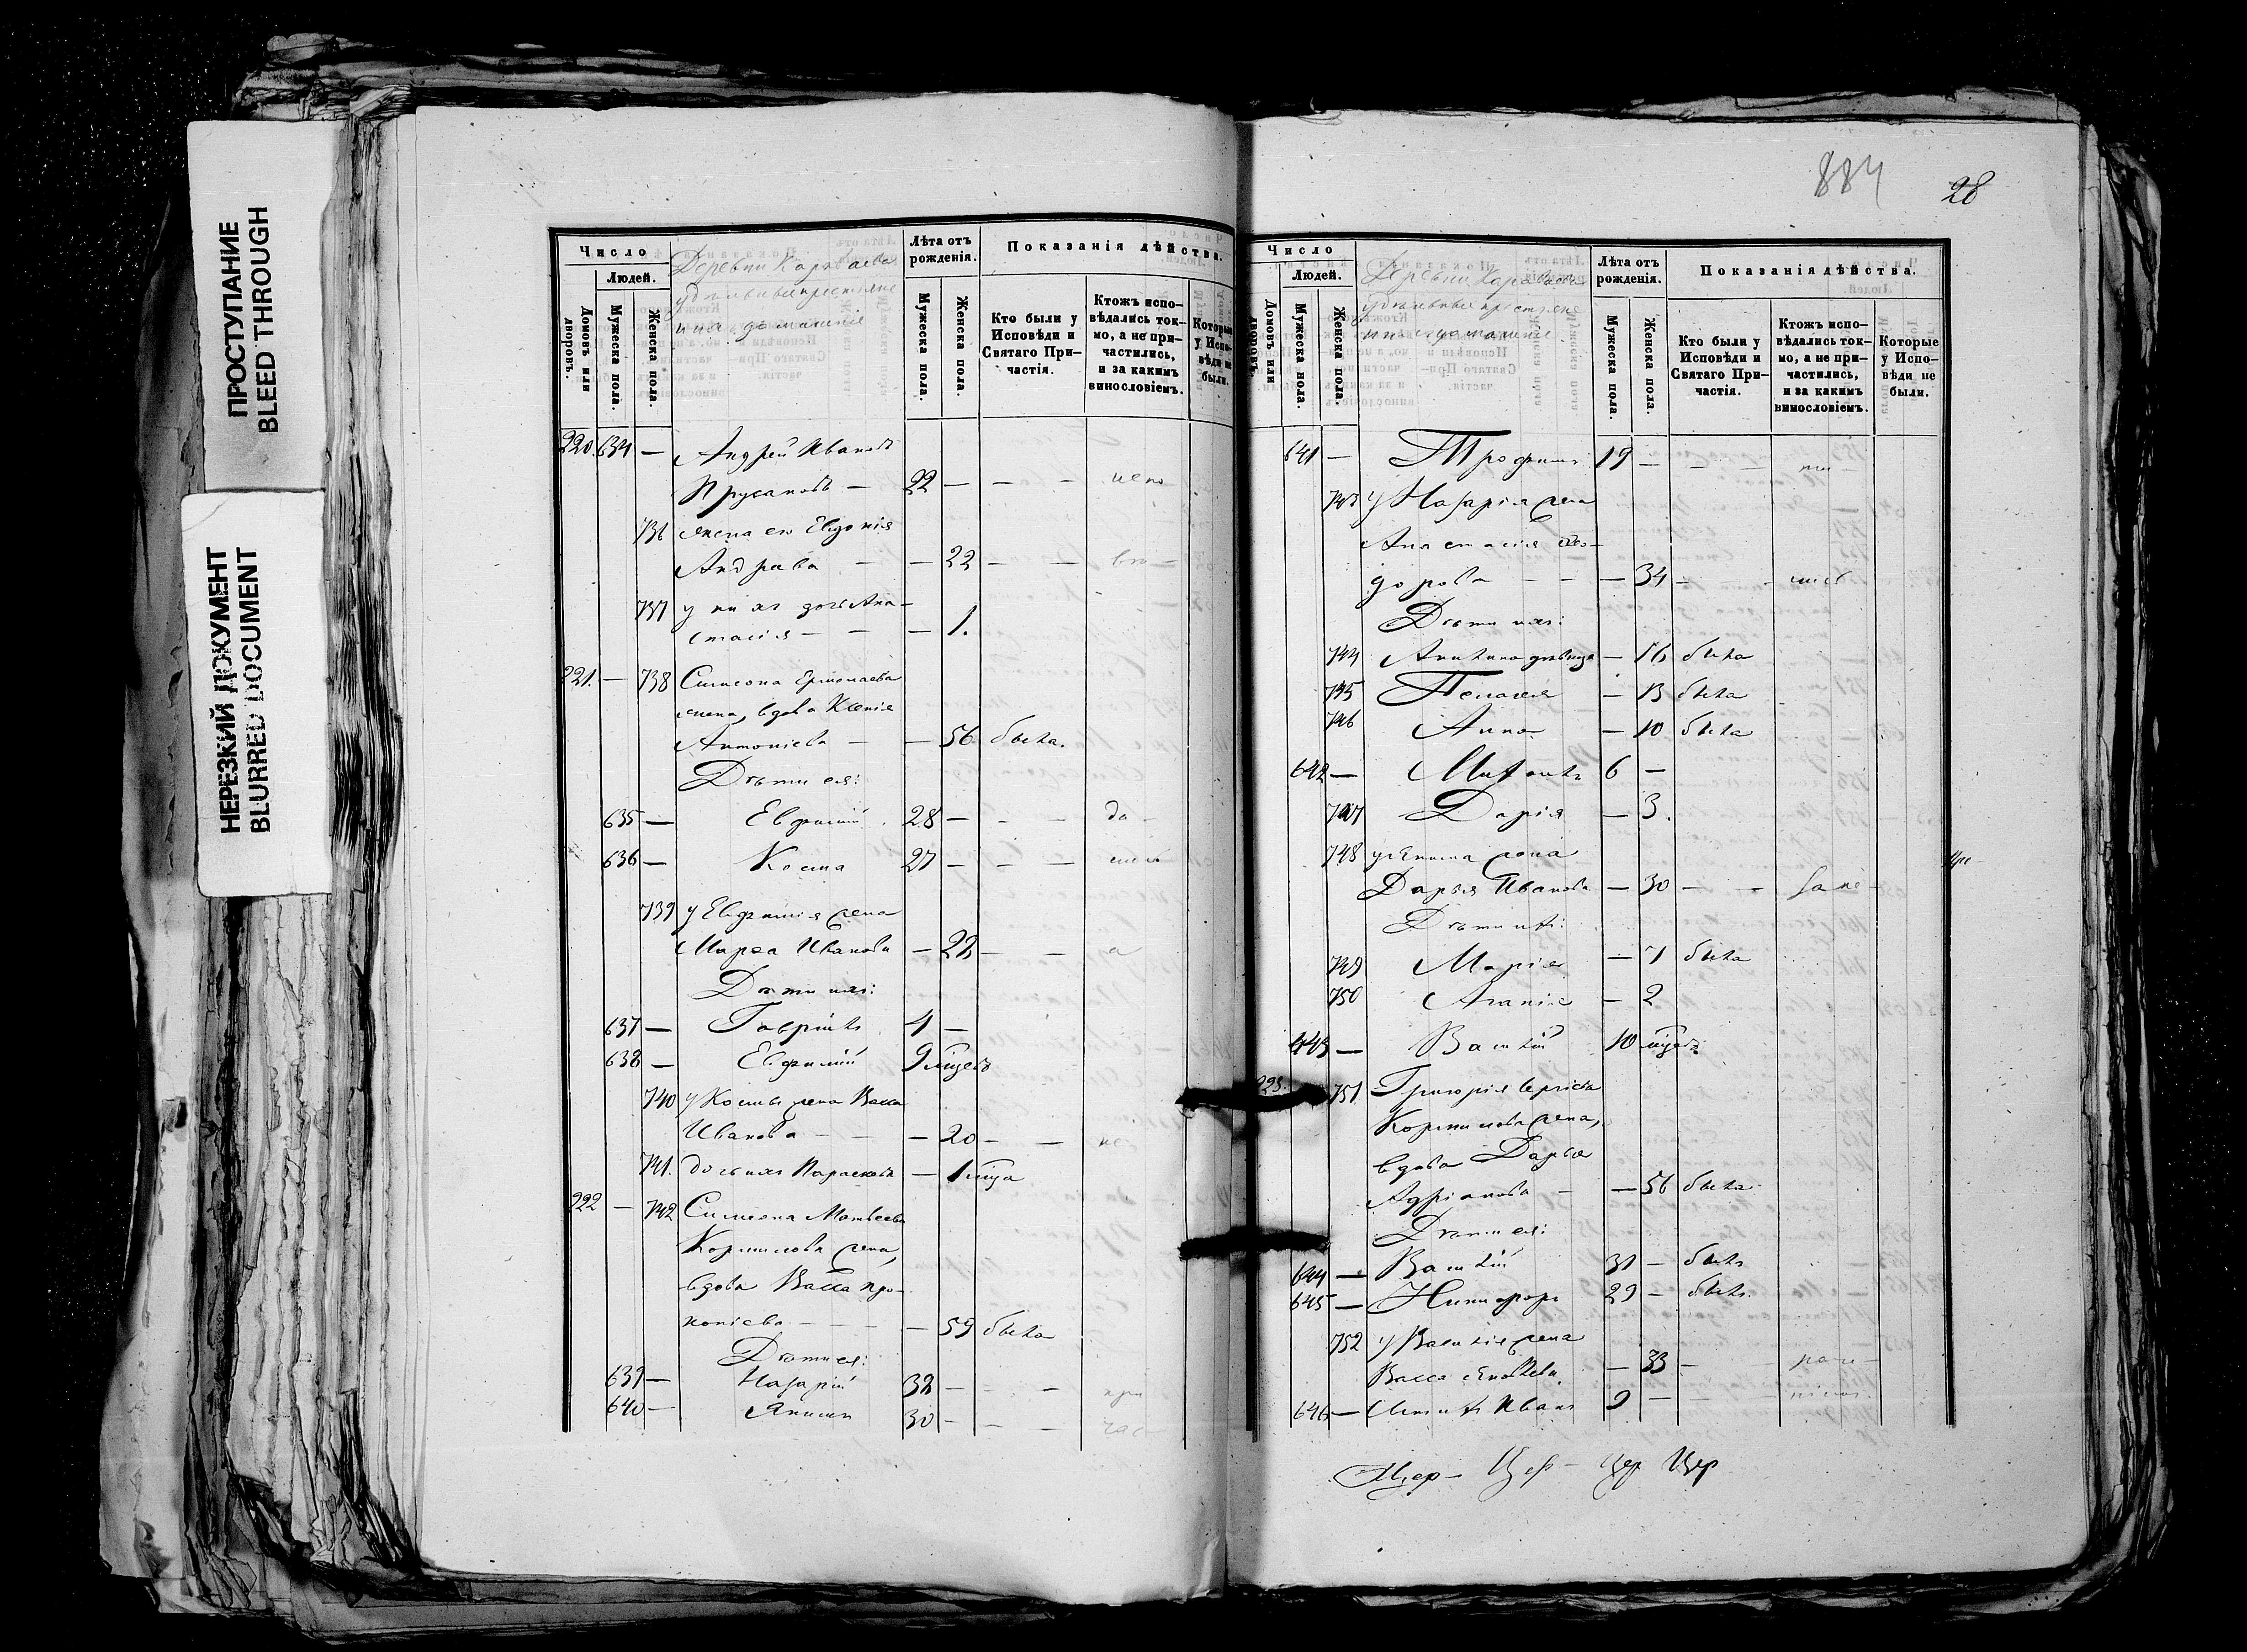 ПРОСТУПАНИЕ
BLEED THROUGH
НЕРЕЗКИЙ ДОКУМЕНТ
BLURRED DOCUMENT
Число
Людей.
Домовъ или дворовъ.
Мужеска пола.
Женска пола.
Деревни
удѣльные крестьяне
и их домашніе
Лѣта отъ рожденія.
Мужеска пола.
Женска пола.
Показанія дѣйства.
Кто были у Исповѣди и Святаго При-частія.
Ктожъ испо-вѣдались ток-мо, а не при-частились, и за какимъ винословіемъ.
Которые у Испо-вѣди не были.
220. 634 — Андрей Ивановъ
Прусаковъ — 22 — — —
736 жена его Евдокія
Андреева — — 22 — —
737 у нихъ дочь Ана-
стасія — — — 1.
221. — 738 Симеона Ермолаева
жена, вдова Ксенія
Антоніева — — 56 была.
Дѣти ея:
635 — Евфимій 28 — — — до —
636 — Косма 27 — — —
739 у Евфимія жена
Марѳа Иванова — 22 — —
Дѣти ихъ:
637 — Гавріилъ 4 —
638 — Евфимій 9 мцевъ
740 у Космы жена Васса
Иванова — — — 20 — —
741. дочь ихъ Параскева — 1 мца
222 — 742 Симеона Матвеева
Кормилова жена,
вдова Васса Про-
копіева — — — — 59 была
Дѣти ея:
639 — Назарій 32 — — — при
640 — Якимъ 30 — — — час
884
28
Число
Людей.
Домовъ или дворовъ.
Мужеска пола.
Женска пола.
Деревни
удѣльные крестьяне
и ихъ домашніе
Лѣта отъ рожденія.
Мужеска пола.
Женска пола.
Показанія дѣйства.
Кто были у Исповѣди и Святаго При-частія.
Ктожъ испо-вѣдались ток-мо, а не при-частились, и за какимъ винословіемъ.
Которые у Испо-вѣди не были.
641 — Трофимъ 19 — — — ти —
743 у Назарія жена
Анастасія Ѳео-
дорова — — — 34 — —
Дѣти ихъ:
744 Акилина дѣвица — 16 была
745 Пелагея — 13 была
746 Анна — 10 была
642 — 6 —
747 Дарія — 3.
748 у Якима жена
Дарья Иванова — 30 — — за не —
Дѣти ихъ:
749 Марія — 7 была
750 Агапія — 2
643 — Василій 10 мцевъ
223. 751 Григорія
Кормилова жена,
вдова Дарья
Адріанова — — 56 была
Дѣти ея:
644 — Василій 31 — былъ
645 — Никифоръ 29 — былъ.
752 у Василія жена
Васса — 33 — —
646 — Иванъ 9 — —
Цер — Цер